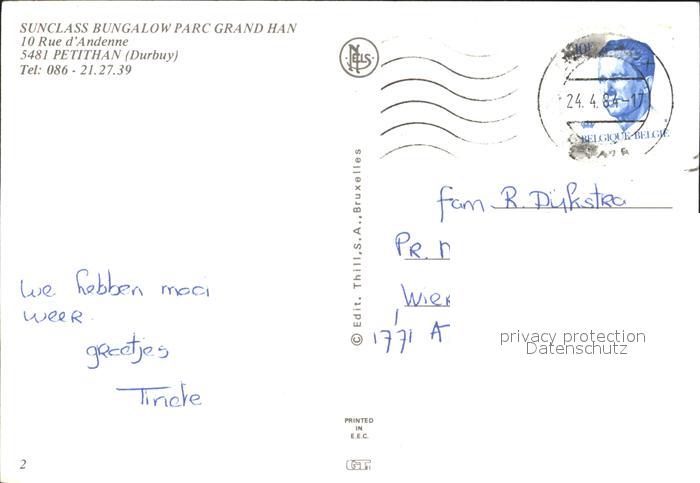 SUNCLASS BUNGALOW PARC GRAND HAN
10 Rue d'Andenne
5481 PETITHAN (Durbuy)
Tel: 086 - 21.27.39
NELS
10F
24.4.84-17
BELGIQUE-BELGIË
© Edit. Thill, S.A., Bruxelles
fam R. Dijkstra
PR.
Wier
1771 A
privacy protection
Datenschutz
we hebben mooi
weer.
groetjes
Tineke
PRINTED
IN
E.E.C.
2